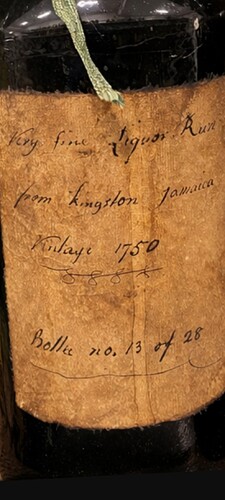 Very fine Liquor Rum
from kingston Jamaica
Vintage 1750
Bottle no. 13 of 28